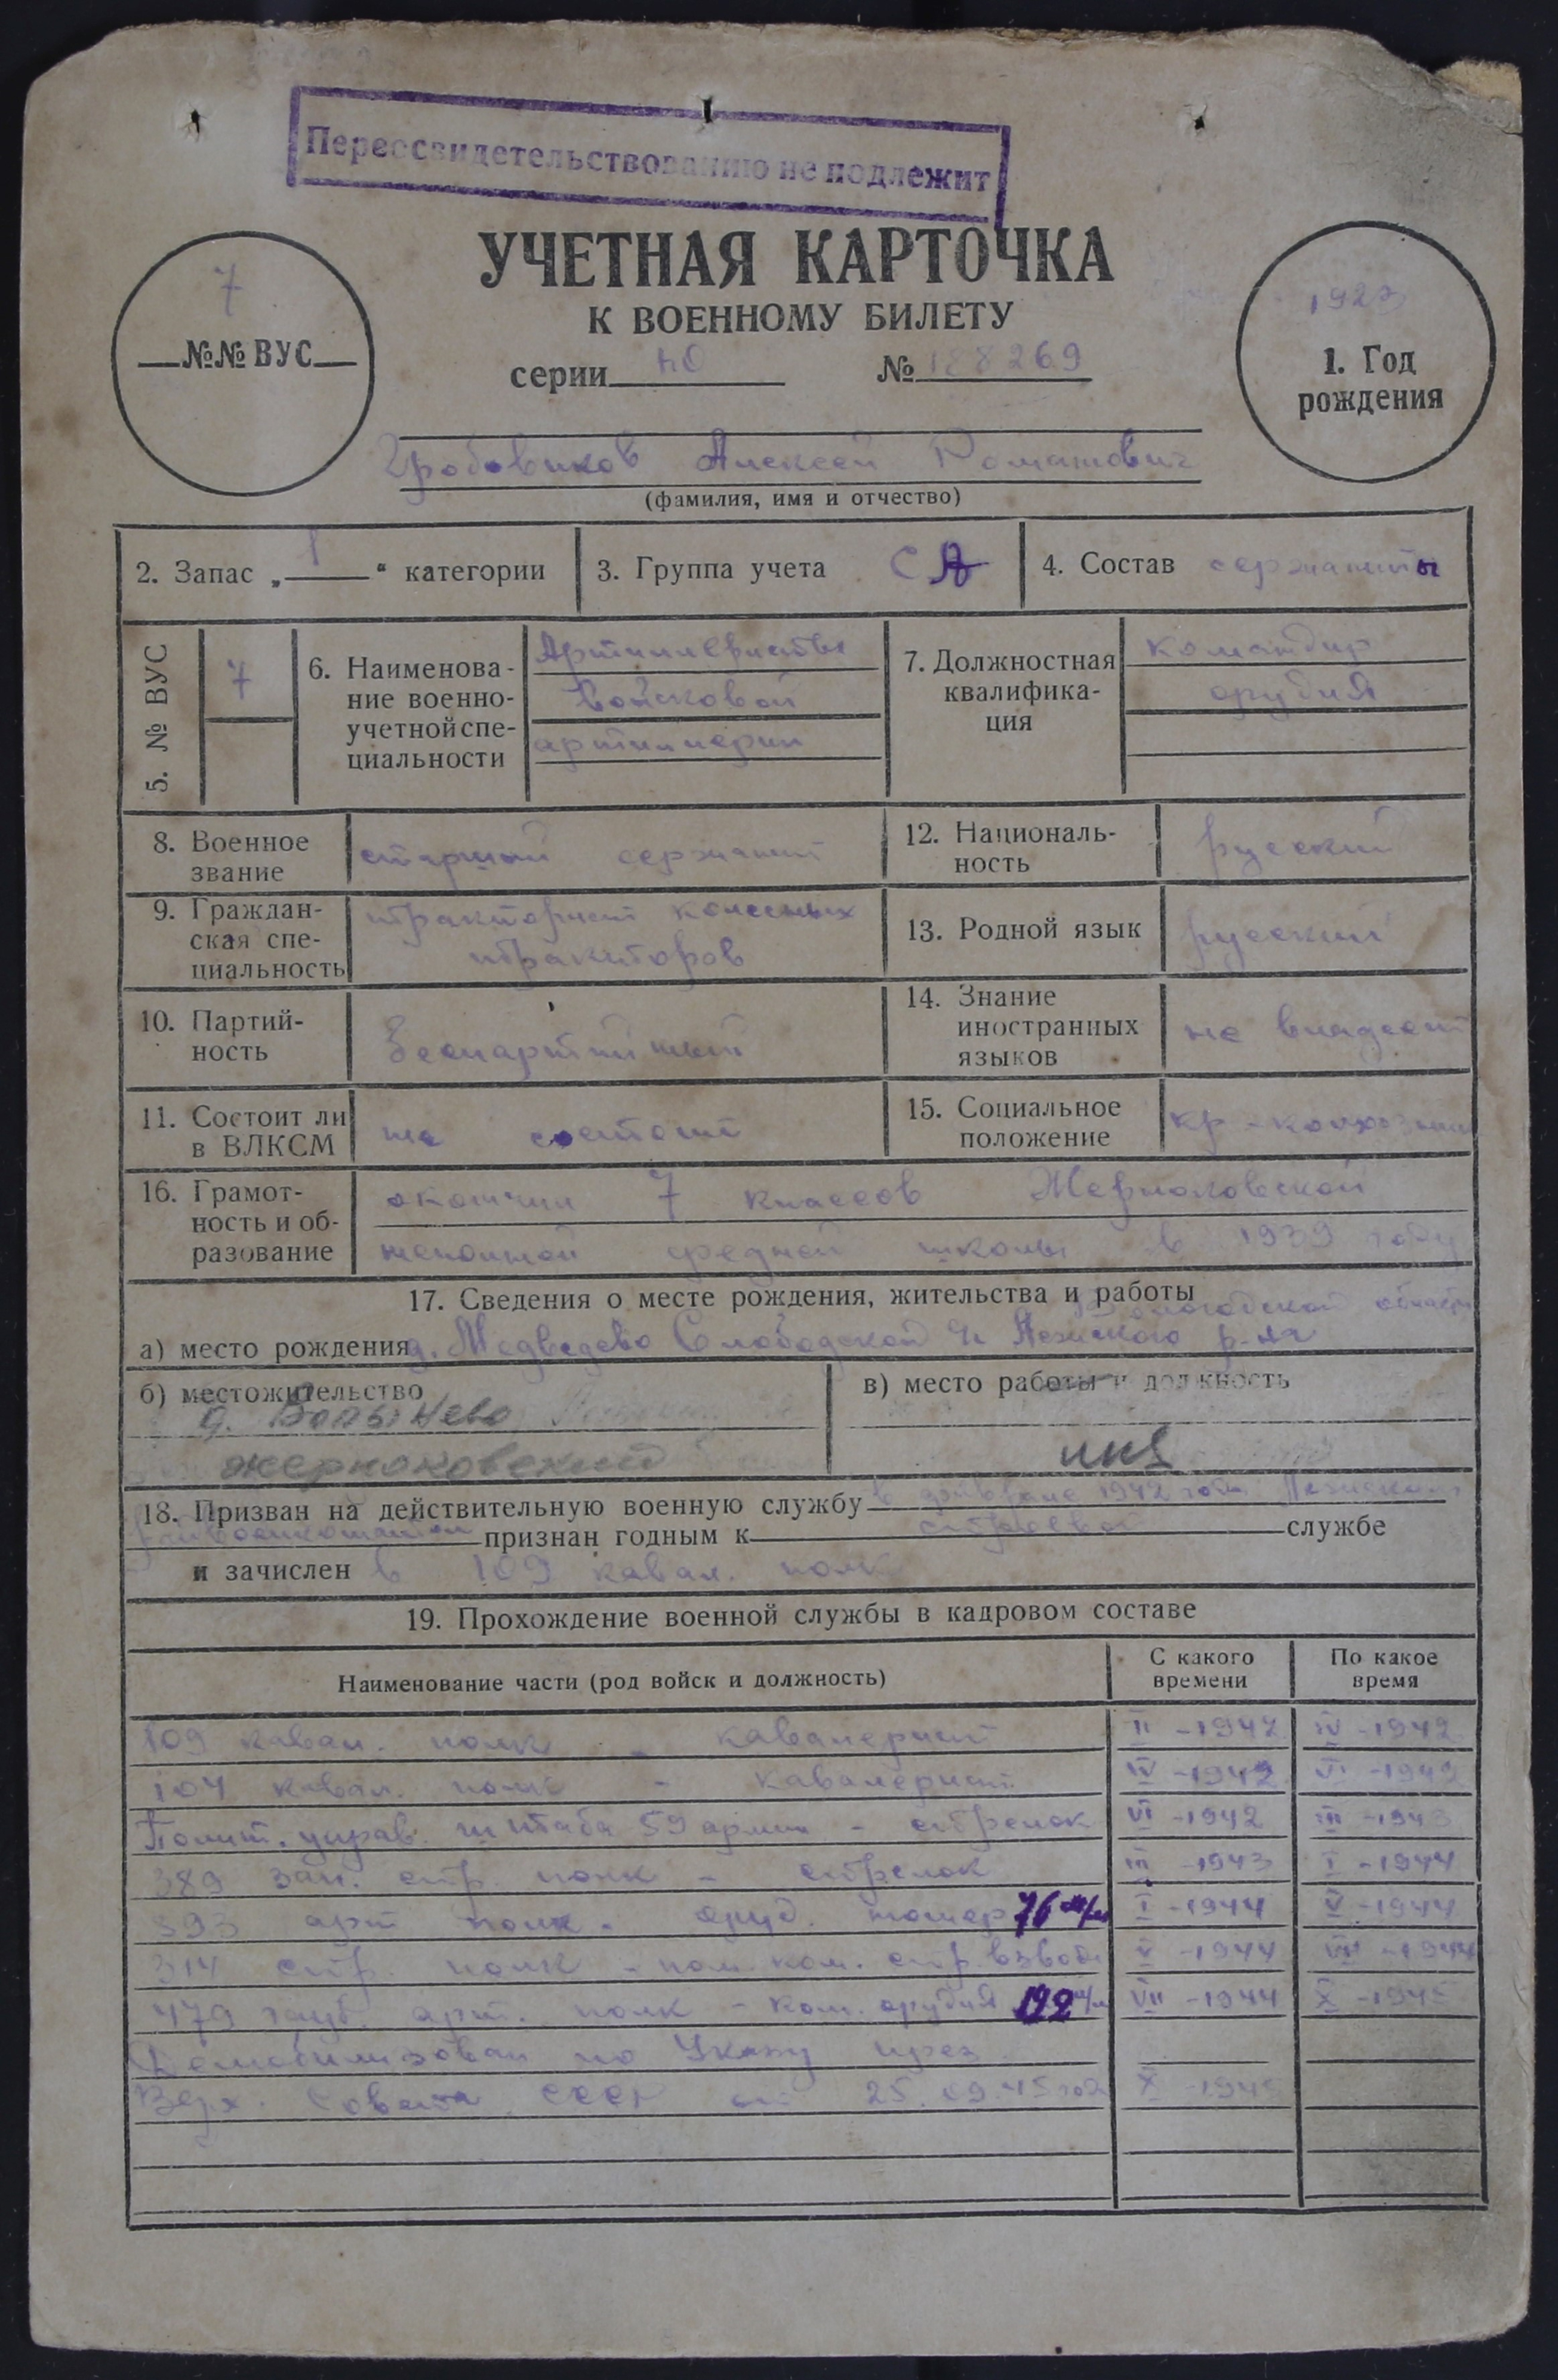 Переосвидетельствованию не подлежит
УЧЕТНАЯ КАРТОЧКА
К ВОЕННОМУ БИЛЕТУ
7
№№ ВУС
1923
1. Год
рождения
серии № 188269
Алексей Романович
(фамилия, имя и отчество)
2. Запас „ 1 “ категории
3. Группа учета СА
4. Состав сержанты
5. № ВУС 7
6. Наименова-
ние военно-
учетной спе-
циальности
Артиллеристы
войсковой
артиллерии
7. Должностная
квалифика-
ция
командир
орудия
8. Военное
звание
старший сержант
12. Националь-
ность
русский
9. Граждан-
ская спе-
циальность
тракторист колесных
тракторов
13. Родной язык русский
10. Партий-
ность
беспартийный
14. Знание
иностранных
языков
не владеет
11. Состоит ли
в ВЛКСМ
не состоит
15. Социальное
положение
кр-колхозник
16. Грамот-
ность и об-
разование
окончил 7 классов Жерноковской
неполной средней школы в 1939 году
17. Сведения о месте рождения, жительства и работы
Вологодской области
а) место рождения д. Медведево Слободской Лежского р-на
б) местожительство
д.
жерноковский
в) место работы и должность
18. Призван на действительную военную службу в феврале 1942 года Лежским
райвоенкоматом признан годным к строевой службе
и зачислен в 109 кавал. полк
19. Прохождение военной службы в кадровом составе
Наименование части (род войск и должность)
С какого
времени
По какое
время
109 кавал. полк - кавалерист II - 1942 IV - 1942
104 кавал. полк - кавалерист IV - 1942 VI - 1942
Полит. управ. штаба 59 армии - стрелок VI - 1942 III - 1943
389 зап. стр. полк - стрелок III - 1943 I - 1944
393 арт полк - оруд. номер 76 м/м I - 1944 V - 1944
314 стр. полк - пом. ком. стр. взвода V - 1944 VII - 1944
479 гауб арт. полк - ком. орудия 122 м/м VII - 1944 X - 1945
Демобилизован по Указу През.
Верх. Совета СССР от 25.09.45 года X - 1945